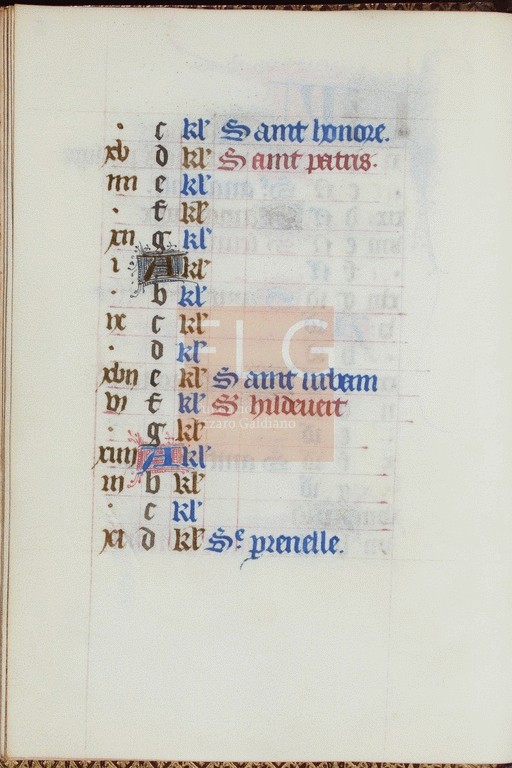 . c kl' Saint honore.
xv d kl' Saint patris.
iiii e kl'
. f kl'
xii g kl'
i A kl'
. b kl'
ix c kl'
. d kl'
xvii e kl' Saint urbain
vi f kl' St hildevert
. g kl'
xiiii A kl'
iii b kl'
. c kl'
xi d kl' Se. prenelle.
FLG
Lázaro Galdiano